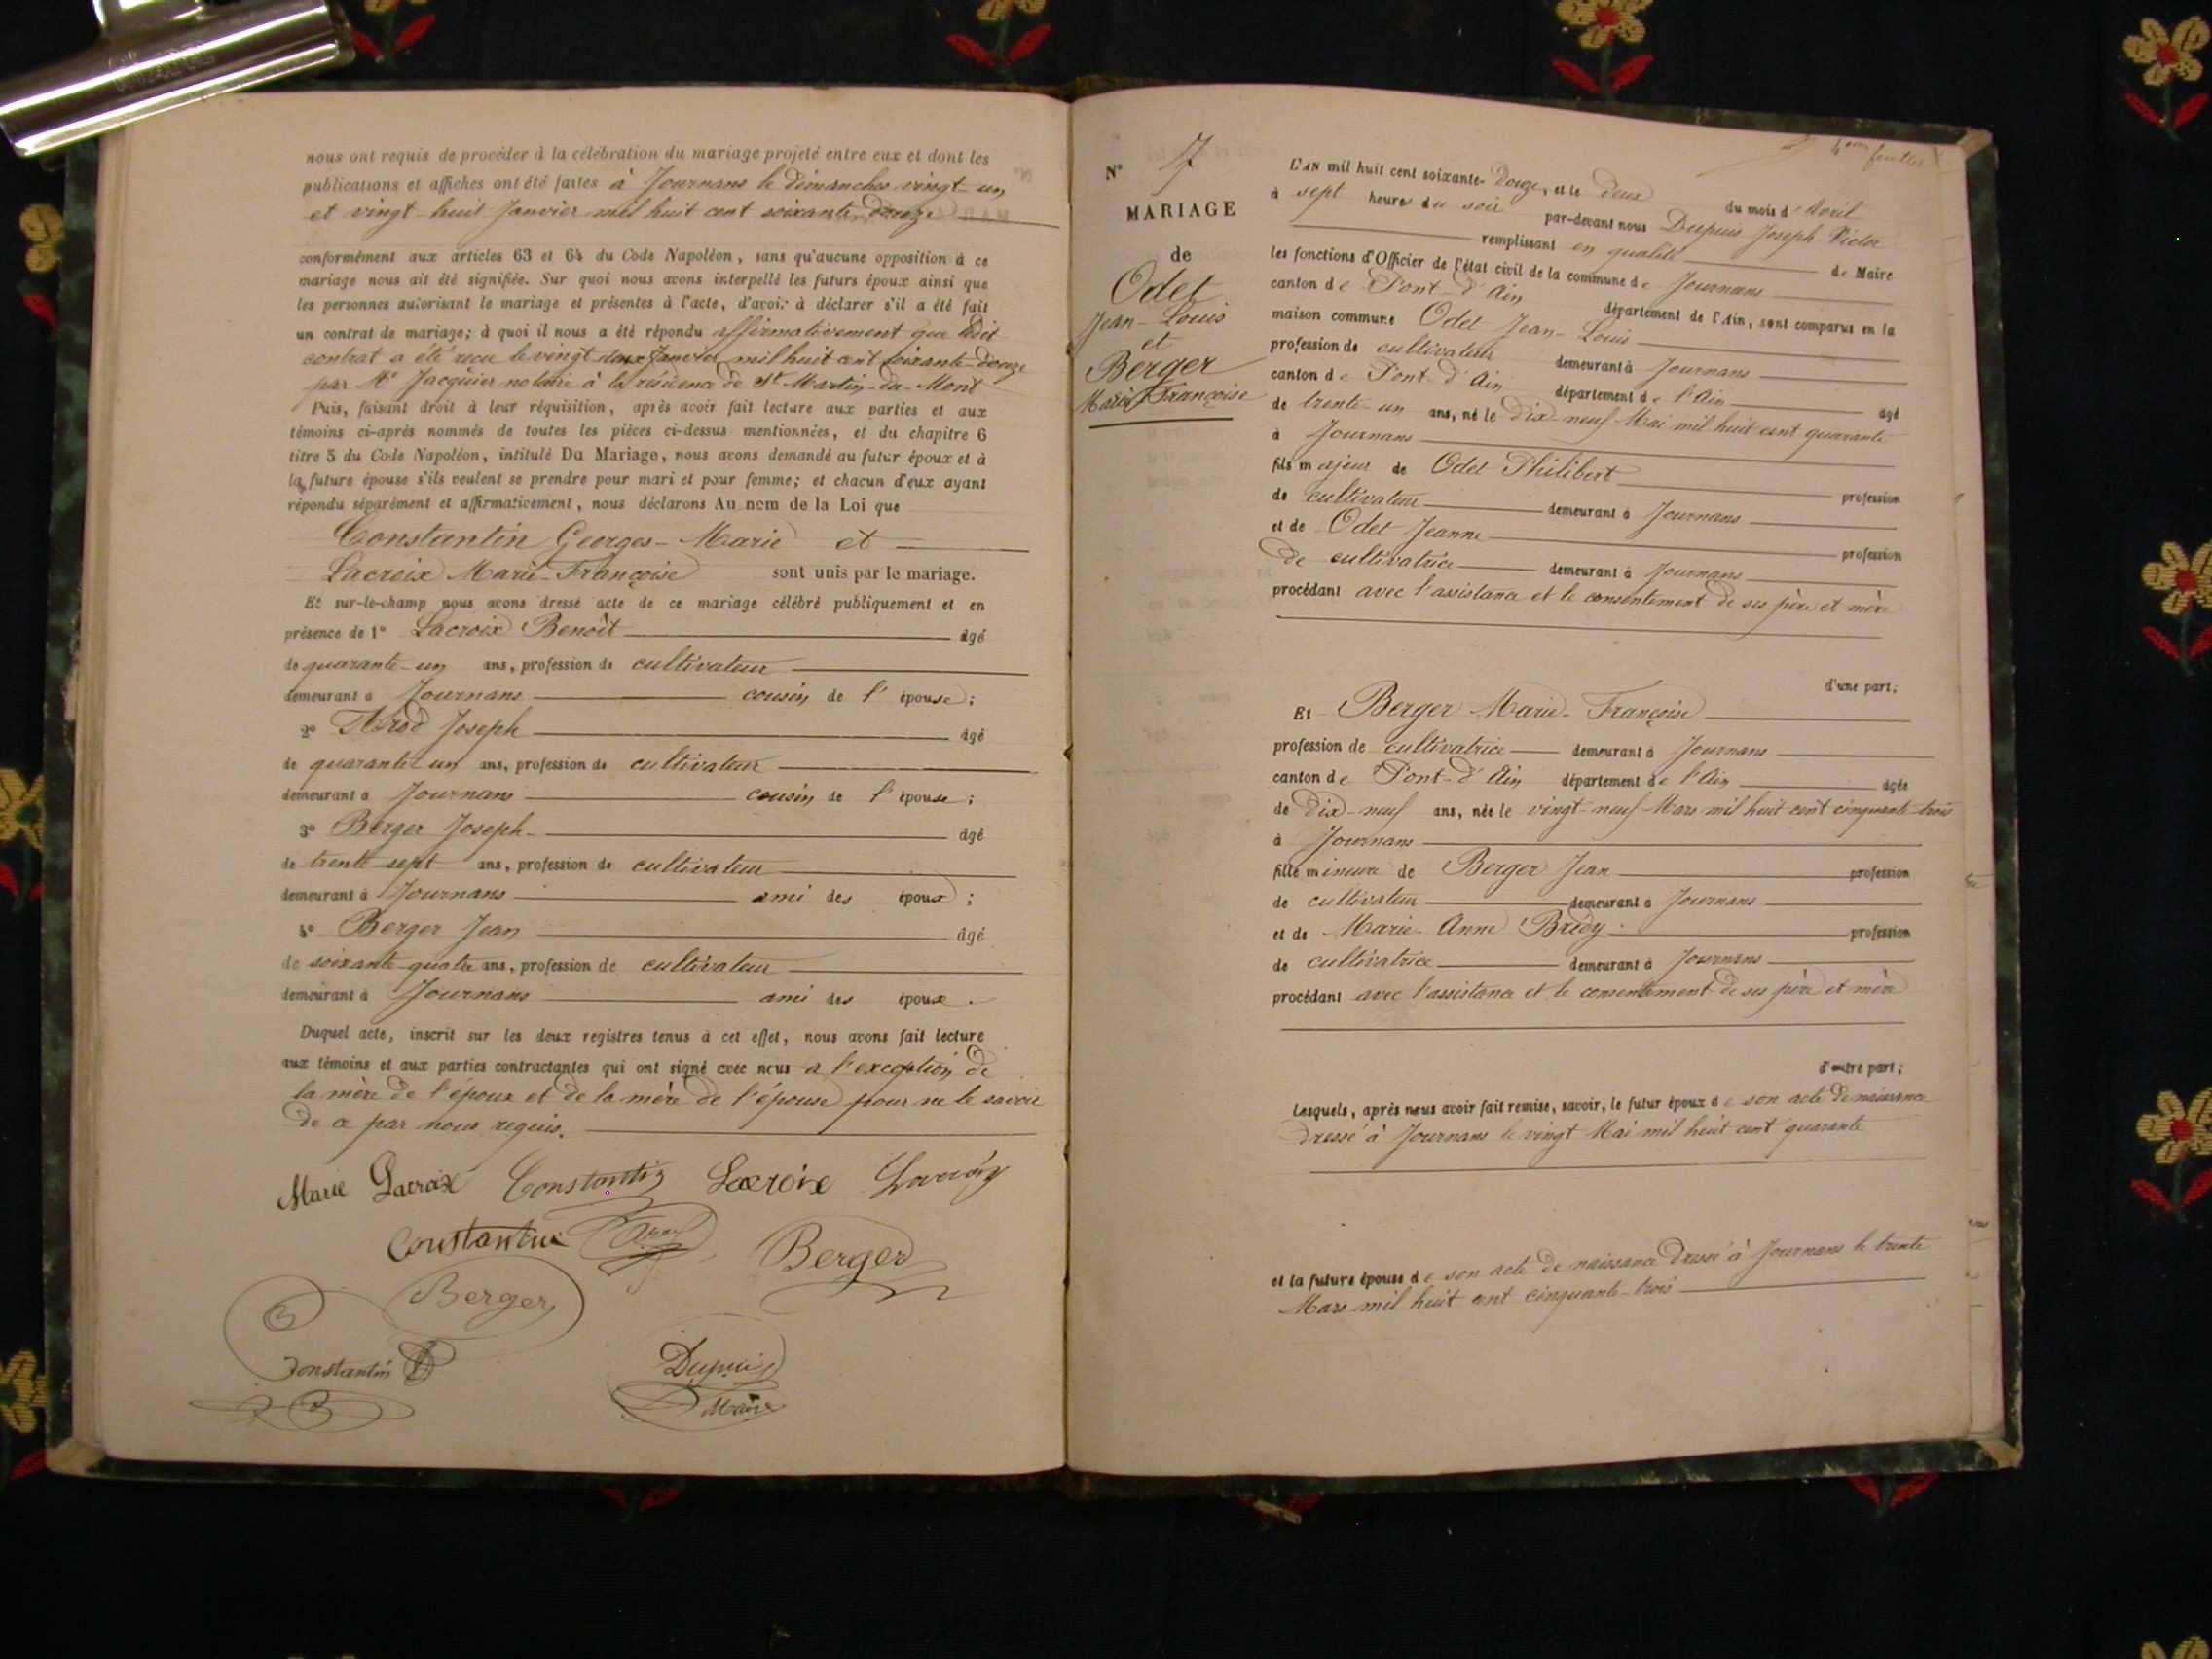 nous ont requis de procéder à la célébration du mariage projeté entre eux et dont les
publications et affiches ont été faites à Journans le dimanches vingt-un
et vingt-huit Janvier mil huit cent soixante-douze
conformément aux articles 63 et 64 du Code Napoléon, sans qu'aucune opposition à ce
mariage nous ait été signifiée. Sur quoi nous avons interpellé les futurs époux ainsi que
les personnes autorisant le mariage et présentes à l'acte, d'avoir à déclarer s'il a été fait
un contrat de mariage; à quoi il nous a été répondu affirmativement que ledit
contrat a été reçu le vingt deux Janvier mil huit cent soixante-douze
par Me Jacquier notaire à la résidence de St Martin-du-Mont
Puis, faisant droit à leur réquisition, après avoir fait lecture aux parties et aux
témoins ci-après nommés de toutes les pièces ci-dessus mentionnées, et du chapitre 6
titre 5 du Code Napoléon, intitulé Du Mariage, nous avons demandé au futur époux et à
la future épouse s'ils veulent se prendre pour mari et pour femme; et chacun d'eux ayant
répondu séparément et affirmativement, nous déclarons Au nom de la Loi que
Constantin Georges-Marie et
Lacroix Marie-Françoise sont unis par le mariage.
Et sur-le-champ nous avons dressé acte de ce mariage célébré publiquement et en
présence de 1° Lacroix Benoît âgé
de quarante-un ans, profession de cultivateur
demeurant à Journans cousin de l'épouse;
2° Arod Joseph âgé
de quarante-un ans, profession de cultivateur
demeurant à Journans cousin de l'épouse;
3° Berger Joseph âgé
de trente sept ans, profession de cultivateur
demeurant à Journans ami des époux;
4° Berger Jean âgé
de soixante-quatre ans, profession de cultivateur
demeurant à Journans ami des époux.
Duquel acte, inscrit sur les deux registres tenus à cet effet, nous avons fait lecture
aux témoins et aux parties contractantes qui ont signé avec nous à l'exception de
la mère de l'époux et de la mère de l'épouse pour ne le savoir
de ce par nous requis.
Marie Lacroix Constantin Lacroix
Constantin Arod Berger
Berger
Constantin
Dupuis
Maire
4eme feuillet
N° 7
MARIAGE
de
Odet
Jean-Louis
et
Berger
Marie Françoise
L'AN mil huit cent soixante-douze, et le deux du mois d'Avril
à sept heures du soir par-devant nous Dupuis Joseph Victor
remplissant en qualité de Maire
les fonctions d'Officier de l'état civil de la commune de Journans
canton de Pont-d'Ain département de l'Ain, sont comparus en la
maison commune Odet Jean-Louis
profession de cultivateur demeurant à Journans
canton de Pont-d'Ain département de l'Ain âgé
de trente-un ans, né le dix-neuf Mai mil huit cent quarante
à Journans
fils majeur de Odet Philibert profession
de cultivateur demeurant à Journans
et de Odet Jeanne profession
de cultivatrice demeurant à Journans
procédant avec l'assistance et le consentement de ses père et mère
d'une part;
Et Berger Marie-Françoise
profession de cultivatrice demeurant à Journans
canton de Pont-d'Ain département de l'Ain âgée
de dix-neuf ans, née le vingt-neuf Mars mil huit cent cinquante-trois
à Journans
fille mineure de Berger Jean profession
de cultivateur demeurant à Journans
et de Marie-Anne Bredy profession
de cultivatrice demeurant à Journans
procédant avec l'assistance et le consentement de ses père et mère
d'autre part;
Lesquels, après nous avoir fait remise, savoir, le futur époux de son acte de naissance
dressé à Journans le vingt Mai mil huit cent quarante
et la future épouse de son acte de naissance dressé à Journans le trente
Mars mil huit cent cinquante-trois